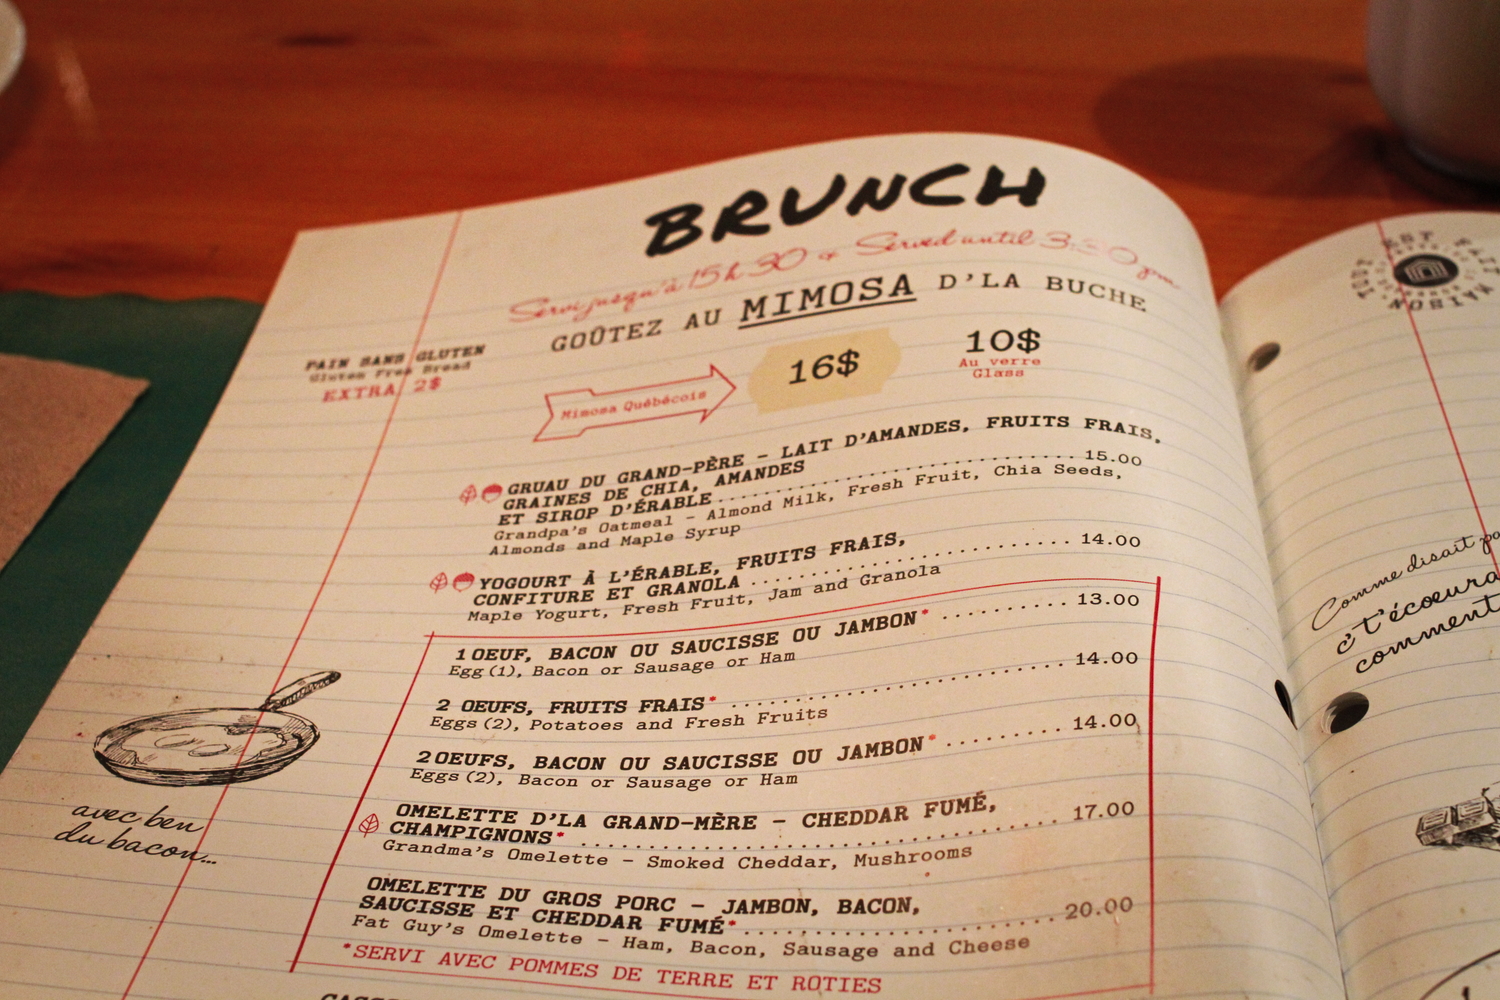 BRUNCH
Servi jusqu'à 15 h 30 & Served until 3:30 pm
GOÛTEZ AU MIMOSA D'LA BUCHE
PAIN SANS GLUTEN
Gluten Free Bread
EXTRA 2$
Mimosa Québécois
16$
10$
Au verre
Glass
GRUAU DU GRAND-PÈRE - LAIT D'AMANDES, FRUITS FRAIS,
GRAINES DE CHIA, AMANDES
ET SIROP D'ÉRABLE .......... 15.00
Grandpa's Oatmeal - Almond Milk, Fresh Fruit, Chia Seeds,
Almonds and Maple Syrup
YOGOURT À L'ÉRABLE, FRUITS FRAIS,
CONFITURE ET GRANOLA .......... 14.00
Maple Yogurt, Fresh Fruit, Jam and Granola
1 OEUF, BACON OU SAUCISSE OU JAMBON* .......... 13.00
Egg (1), Bacon or Sausage or Ham
2 OEUFS, FRUITS FRAIS* .......... 14.00
Eggs (2), Potatoes and Fresh Fruits
2 OEUFS, BACON OU SAUCISSE OU JAMBON* .......... 14.00
Eggs (2), Bacon or Sausage or Ham
OMELETTE D'LA GRAND-MÈRE - CHEDDAR FUMÉ,
CHAMPIGNONS* .......... 17.00
Grandma's Omelette - Smoked Cheddar, Mushrooms
OMELETTE DU GROS PORC - JAMBON, BACON,
SAUCISSE ET CHEDDAR FUMÉ* .......... 20.00
Fat Guy's Omelette - Ham, Bacon, Sausage and Cheese
*SERVI AVEC POMMES DE TERRE ET ROTIES
avec ben
du bacon...
TOUT EST FAIT MAISON
Comme disait
c't'écoeura
comment